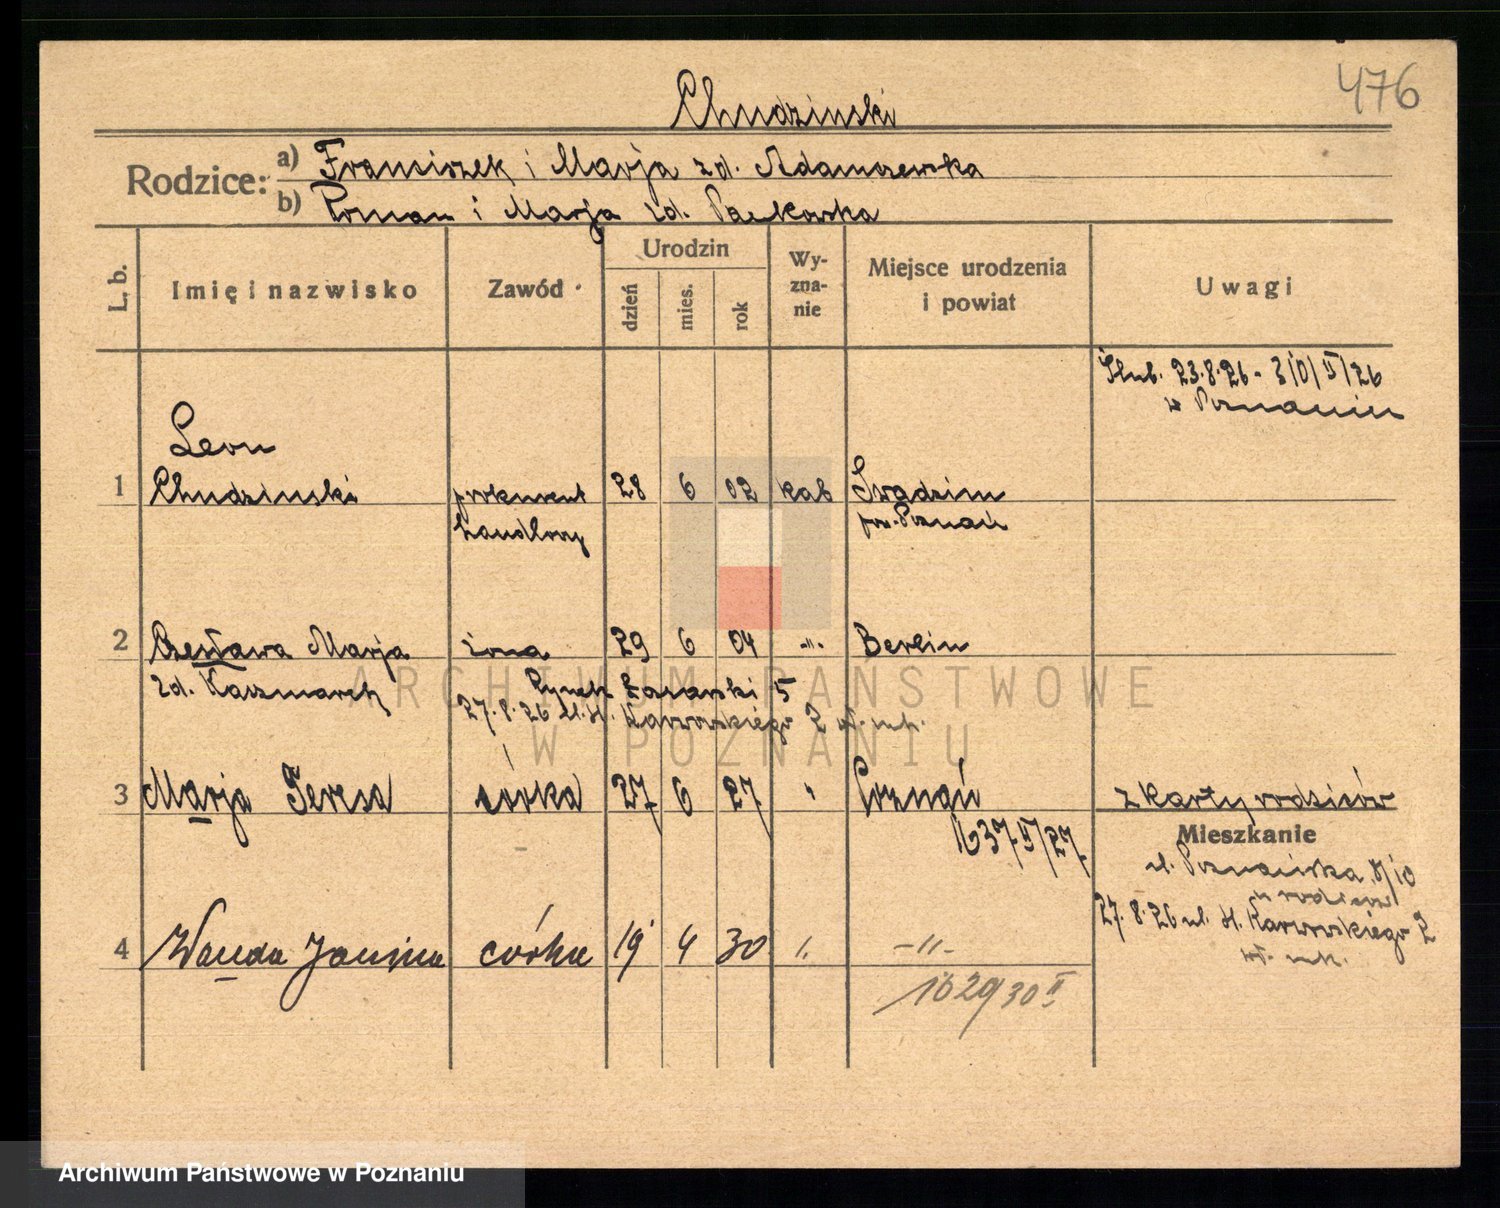 476
Chudzinski
Rodzice: a) Franciszek i Marja zd. Adamczewska
b) Roman i Marja zd.
L. b.
Imię i nazwisko
Zawód
Urodzin
dzień
mies.
rok
Wy-
zna-
nie
Miejsce urodzenia
i powiat
Uwagi
Ślub. 23.8.26 - 310/II/26
w Poznaniu
Leon
1 Chudzinski prokurent 28 6 02 kat Swadzim
handlowy pow. Poznań
2 Czesława Marja żona 29 6 04 -"- Berlin
zd. Kaczmarek Rynek Łazarski 5
27.8.26 ul. H. Karwowskiego 2 wł. mk.
3 Marja Teresa córka 27 6 27 " Poznań z karty rodziców
1637/II/27
Mieszkanie
ul. Poznańska 8/10
u rodziców
27.8.26 ul. H. Karwowskiego 2
wł. mk.
4 Wanda Janina córka 19 4 30 " -"-
1629 30 II
ARCHIWUM PAŃSTWOWE
W POZNANIU
Archiwum Państwowe w Poznaniu